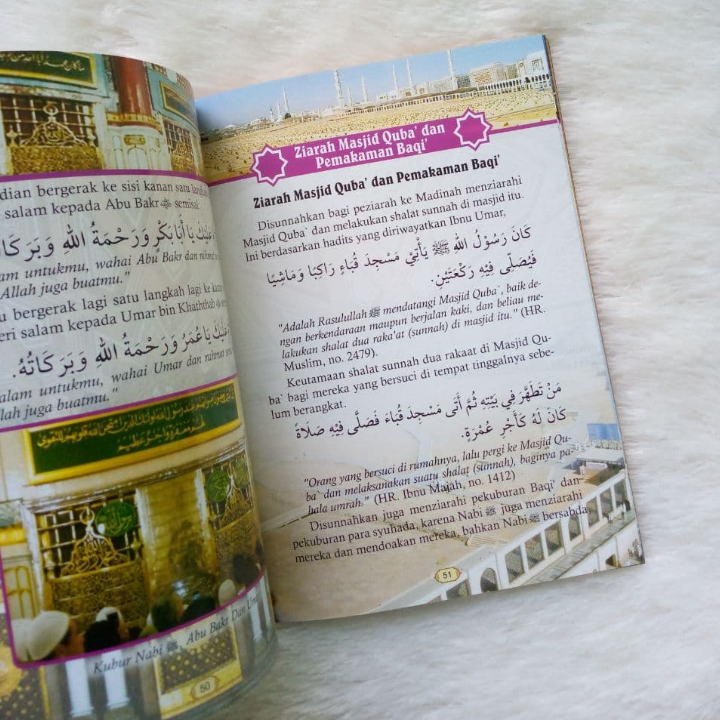 dian bergerak ke sisi kanan satu
salam kepada Abu Bakr ﷺ
يَا أَبَا بَكْرٍ وَرَحْمَةُ اللهِ وَبَرَكَاتُهُ
untukmu, wahai Abu Bakr dan
Allah juga buatmu."
bergerak lagi satu langkah lagi ke kanan
salam kepada Umar bin Khaththab
يَا عُمَرُ وَرَحْمَةُ اللهِ وَبَرَكَاتُهُ.
untukmu, wahai Umar dan rahmat
juga buatmu."
Kubur Nabi ﷺ, Abu Bakr Dan
50
Ziarah Masjid Quba` dan
Pemakaman Baqi'
Ziarah Masjid Quba` dan Pemakaman Baqi'
Disunnahkan bagi peziarah ke Madinah menziarahi
Masjid Quba` dan melakukan shalat sunnah di masjid itu.
Ini berdasarkan hadits yang diriwayatkan Ibnu Umar,
كَانَ رَسُوْلُ اللهِ ﷺ يَأْتِيْ مَسْجِدَ قُبَاءٍ رَاكِبًا وَمَاشِيًا
فَيُصَلِّى فِيْهِ رَكْعَتَيْنِ.
"Adalah Rasulullah ﷺ mendatangi Masjid Quba`, baik de-
ngan berkendaraan maupun berjalan kaki, dan beliau me-
lakukan shalat dua raka'at (sunnah) di masjid itu." (HR.
Muslim, no. 2479).
Keutamaan shalat sunnah dua rakaat di Masjid Qu-
ba` bagi mereka yang bersuci di tempat tinggalnya sebe-
lum berangkat.
مَنْ تَطَهَّرَ فِيْ بَيْتِهِ ثُمَّ أَتَى مَسْجِدَ قُبَاءَ فَصَلَّى فِيْهِ صَلَاةً
كَانَ لَهُ كَأَجْرِ عُمْرَةٍ.
"Orang yang bersuci di rumahnya, lalu pergi ke Masjid Qu-
ba` dan melaksanakan suatu shalat (sunnah), baginya pa-
hala umrah." (HR. Ibnu Majah, no. 1412)
Disunnahkan juga menziarahi pekuburan Baqi' dan
pekuburan para syuhada, karena Nabi ﷺ juga menziarahi
mereka dan mendoakan mereka, bahkan Nabi ﷺ bersabda,
51